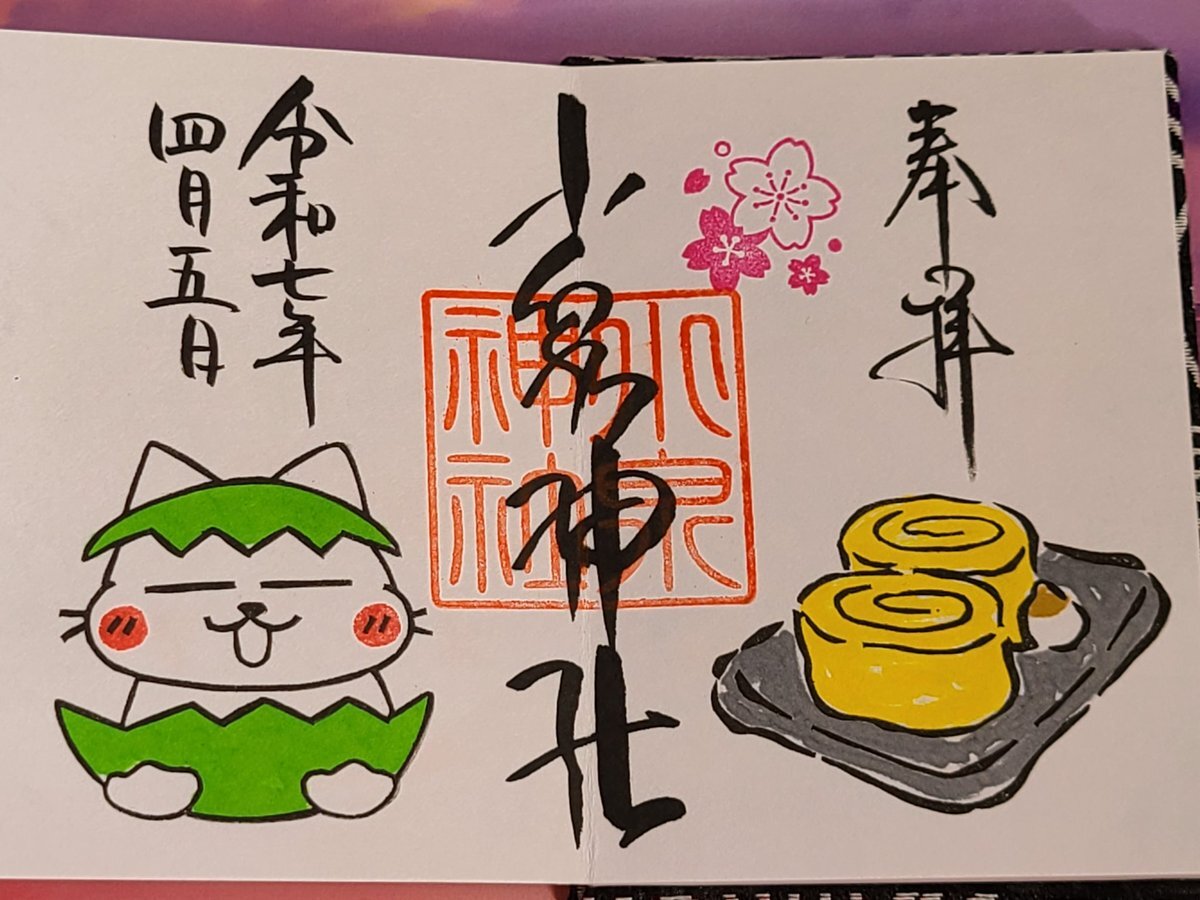 奉拝
小泉神社
小泉神社
令和七年
四月五日